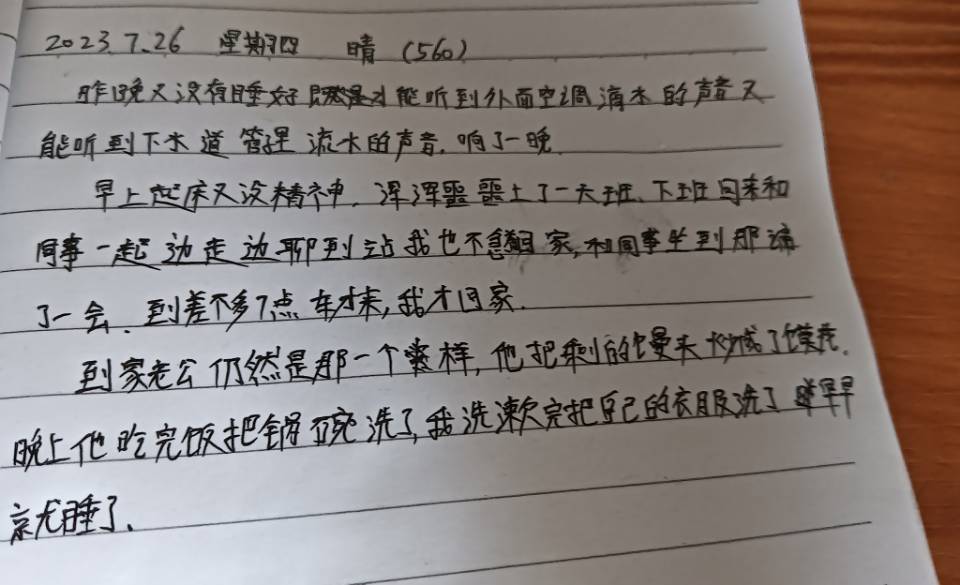 2023.7.26 星期四 晴 (560)
昨晚又没有睡好 既然是才能听到外面空调滴水的声音又
能听到下水道管理流水的声音.响了一晚
早上起床又没精神.浑浑噩噩上了一天班、下班回来和
同事一起边走边聊到站我也不急回家,和同事坐到那
了一会.到差不多7点车才来,我才回家.
到家老公仍然是那一个样,他把剩的馒头炒成了馍花.
晚上他吃完饭把锅碗洗了,我洗漱完把自己的衣服洗了早早
就睡了.